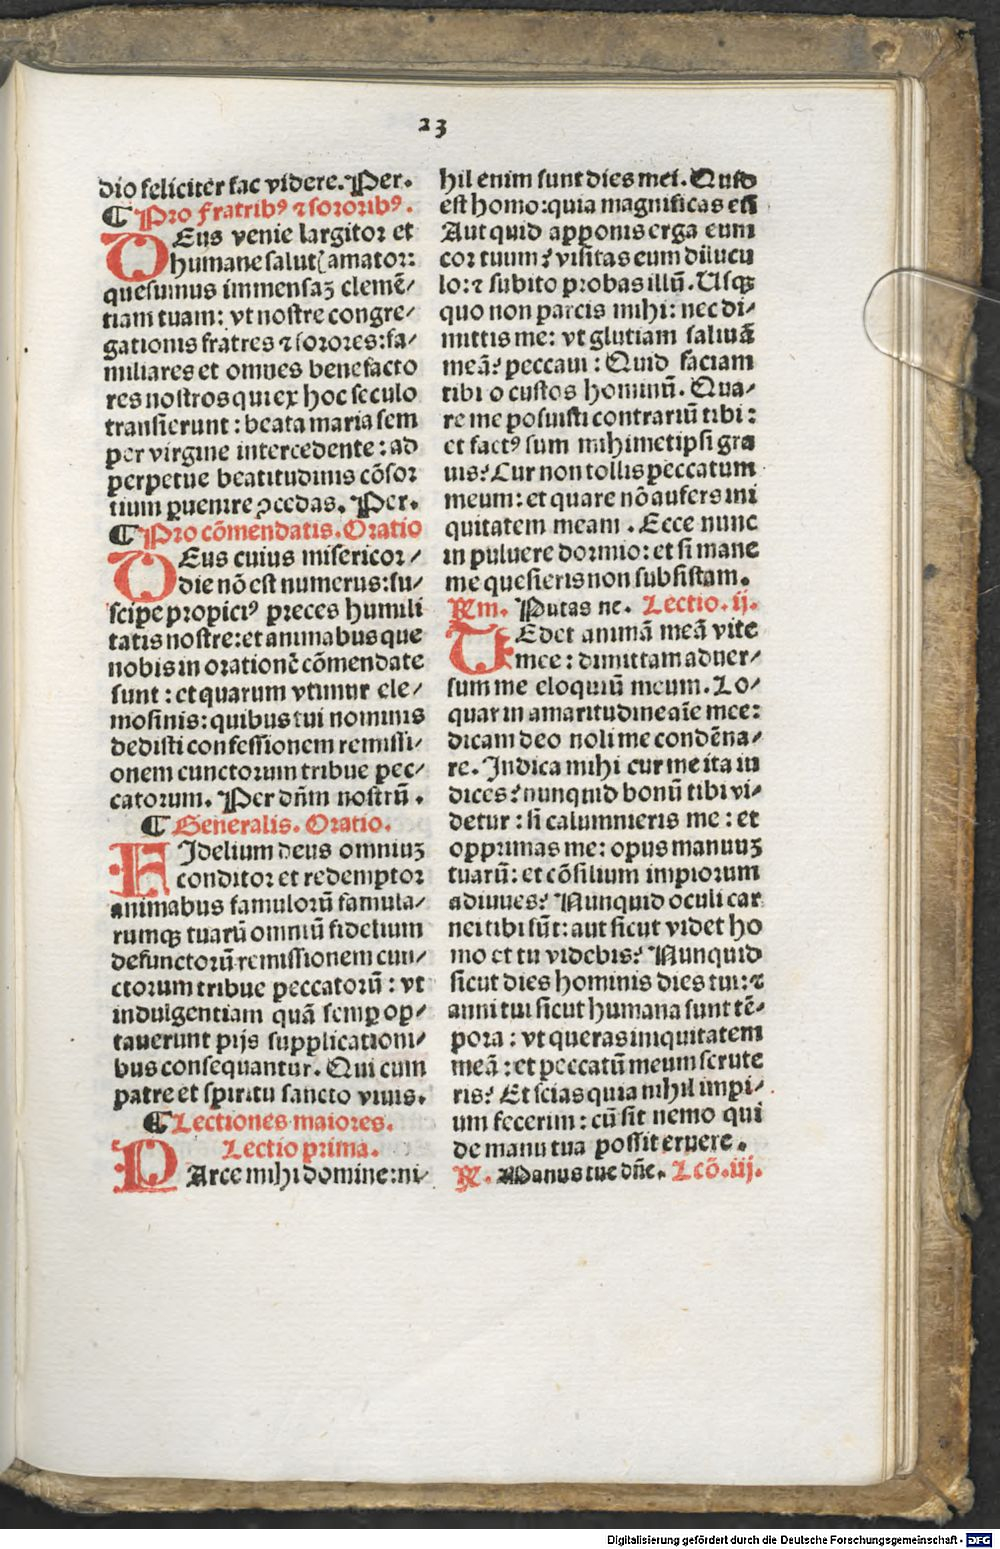 23
dio feliciter fac videre. Per.
¶ Pro fratribꝰ ⁊ sororibꝰ.
DEus venie largitor et
humane salutꝭ amator:
quesumus immensaꝫ clemē/
tiam tuam: vt nostre congre/
gationis fratres ⁊ sorores: fa/
miliares et omnes benefacto
res nostros qui ex hoc seculo
transierunt: beata maria sem
per virgine intercedente: ad
perpetue beatitudinis cōsor
tium ꝑuenire ꝯcedas. Per.
¶ Pro cōmendatis. Oratio
DEus cuius misericor/
die nō est numerus: su/
scipe propiciꝰ preces humili
tatis nostre: et animabus que
nobis in orationē cōmendate
sunt: et quarum vtimur ele/
mosinis: quibus tui nominis
dedisti confessionem remissi/
onem cunctorum tribue pec/
catorum. Per dn̄m nostrū.
¶ Generalis. Oratio.
FIdelium deus omniuꝫ
conditor et redemptor
animabus famulorū famula/
rumqꝫ tuarū omniū fidelium
defunctorū remissionem cun/
ctorum tribue peccatorū: vt
indulgentiam quā semꝑ op/
tauerunt pijs supplicationi/
bus consequantur. Qui cum
patre et spiritu sancto viuis.
¶ Lectiones maiores.
Lectio prima.
PArce mihi domine: ni/
hil enim sunt dies mei. Quid
est homo: quia magnificas eū
Aut quid apponis erga eum
cor tuum? visitas eum dilucu
lo: ⁊ subito probas illū. Usqꝫ
quo non parcis mihi: nec di/
mittis me: vt glutiam saliuā
meā? peccaui: Quid faciam
tibi o custos hominū. Qua/
re me posuisti contrariū tibi:
et factꝰ sum mihimetipsi gra
uis? Cur non tollis peccatum
meum: et quare nō aufers ini
quitatem meam. Ecce nunc
in puluere dormio: et si mane
me quesieris non subsistam.
℞m. Putas ne. Lectio. ij.
TEdet animā meā vite
mee: dimittam aduer/
sum me eloquiū meum. Lo/
quar in amaritudine aīe mee:
dicam deo noli me condēna/
re. Indica mihi cur me ita iu
dices? nunquid bonū tibi vi/
detur: si calumnieris me: et
opprimas me: opus manuuꝫ
tuarū: et cōsilium impiorum
adiuues? Nunquid oculi car
nei tibi sūt: aut sicut videt ho
mo et tu videbis? Nunquid
sicut dies hominis dies tui: ⁊
anni tui sicut humana sunt tē/
pora: vt queras iniquitatem
meā: et peccatū meum scrute
ris? Et scias quia nihil impi/
um fecerim: cū sit nemo qui
de manu tua possit eruere.
℞. Manus tue dn̄e. Lcō. iij.
Digitalisierung gefördert durch die Deutsche Forschungsgemeinschaft - DFG